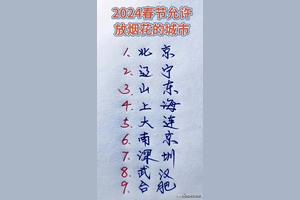 2024春节允许
放烟花的城市
1. 北 京
2. 辽 宁
3. 山 东
4. 上 海
5. 大 连
6. 南 京
7. 深 圳
8. 武 汉
9. 合 肥